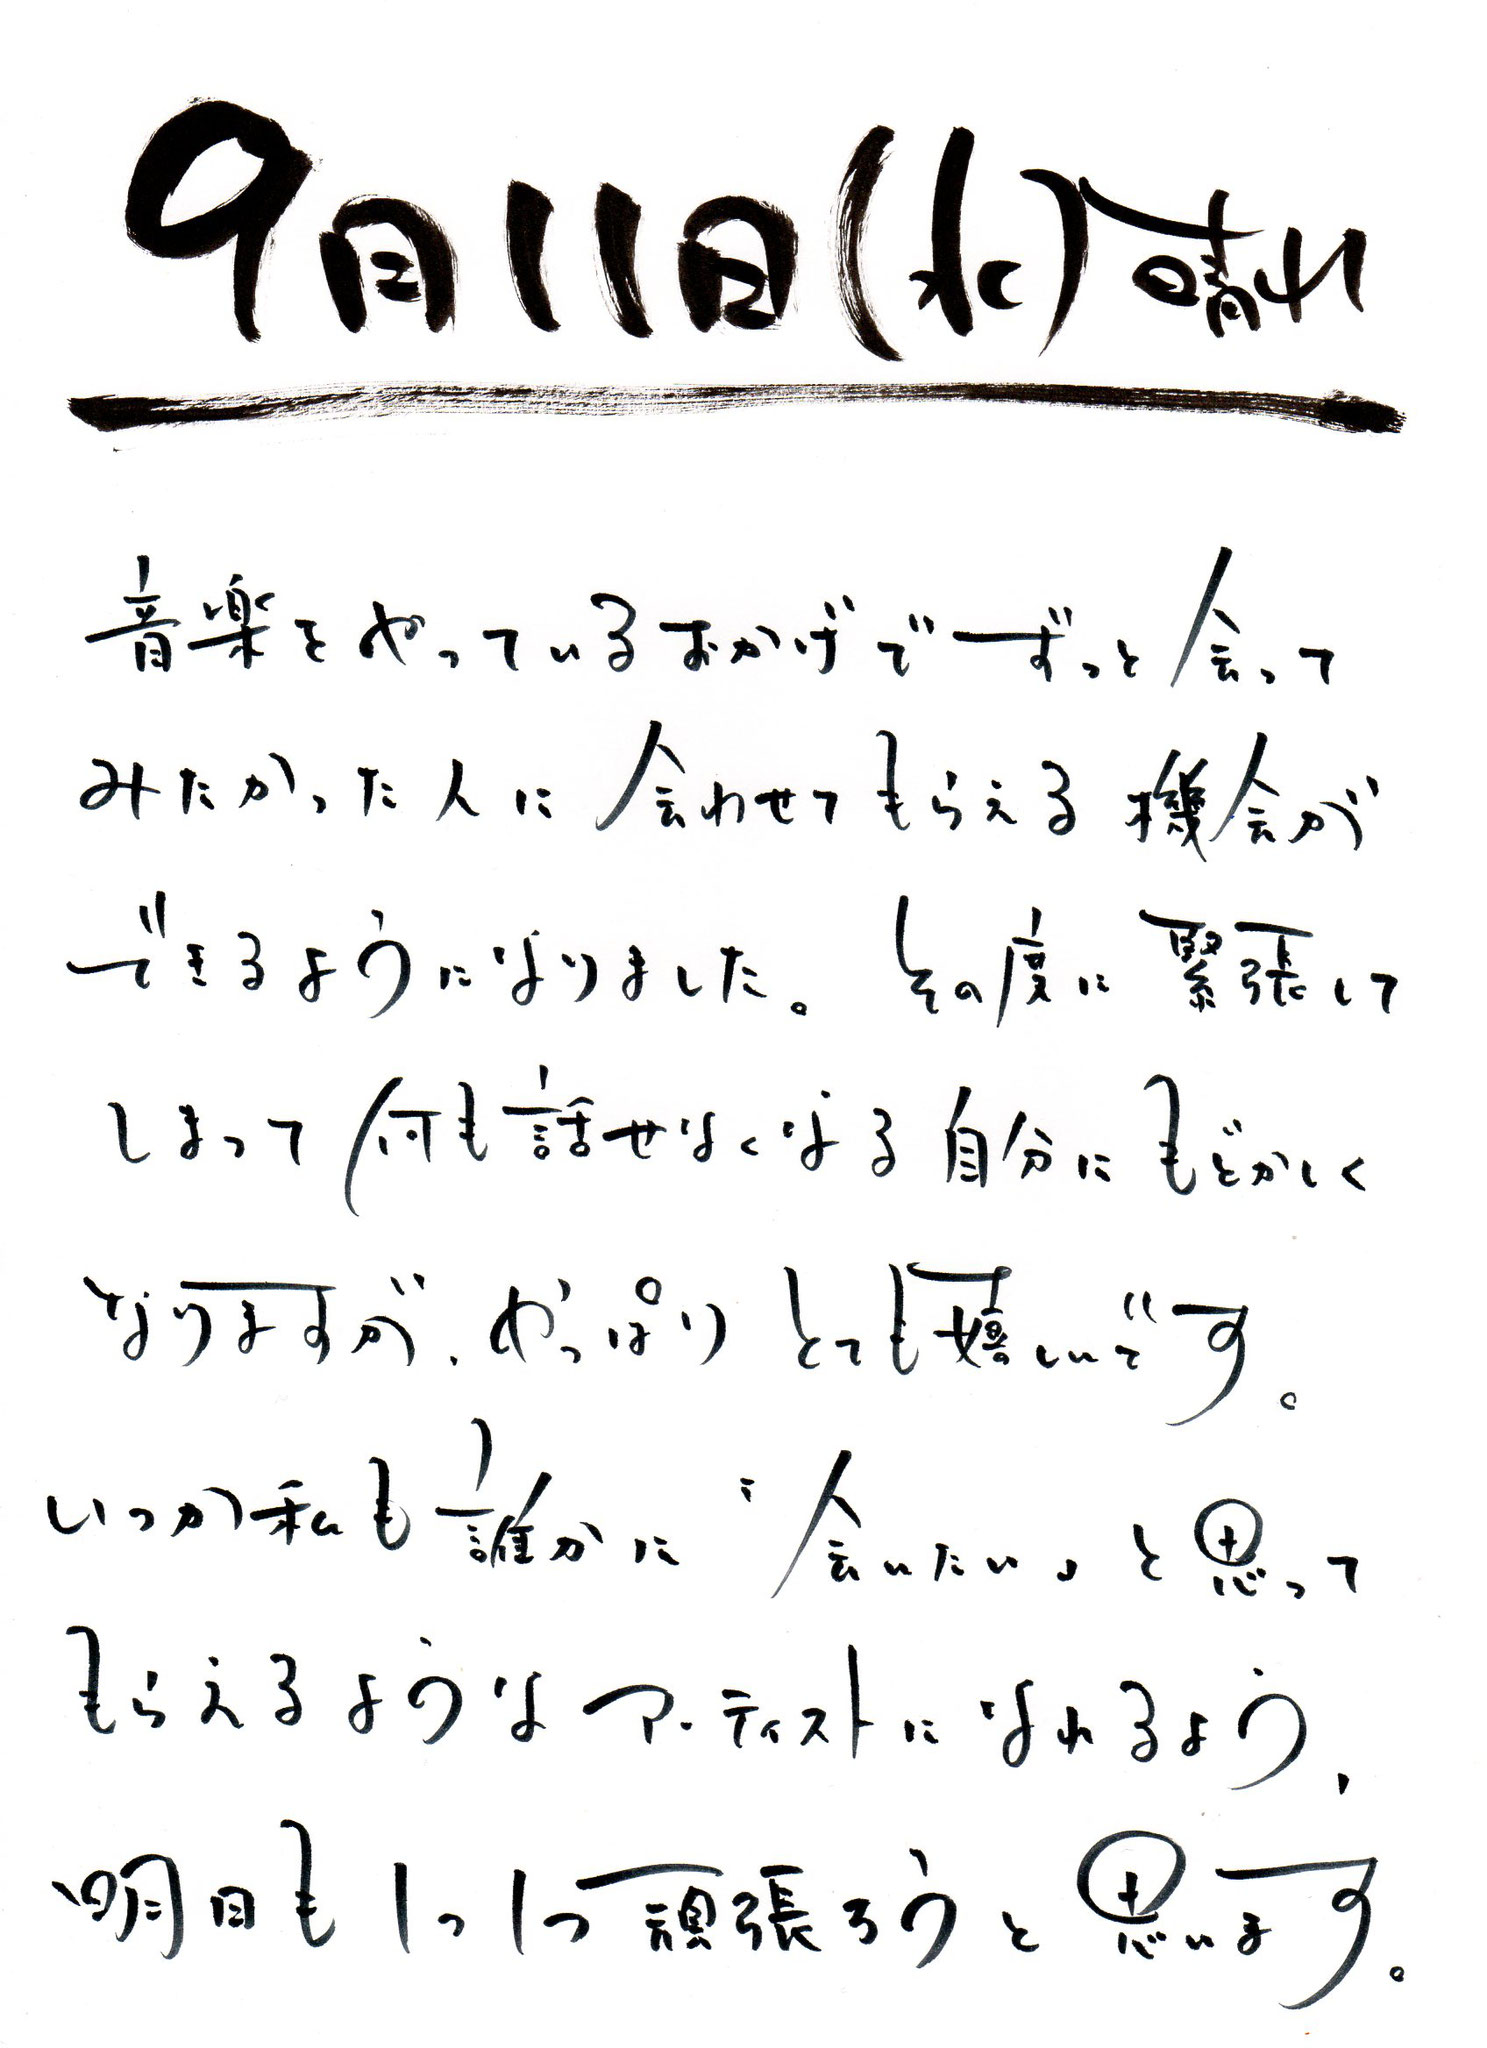 9月11日(水)晴れ
音楽をやっているおかげでずっと会って
みたかった人に会わせてもらえる機会が
できるようになりました。その度に緊張して
しまって何も話せなくなる自分にもどかしく
なりますが、やっぱりとても嬉しいです。
いつか私も誰かに「会いたい」と思って
もらえるようなアーティストになれるよう、
明日も1つ1つ頑張ろうと思います。